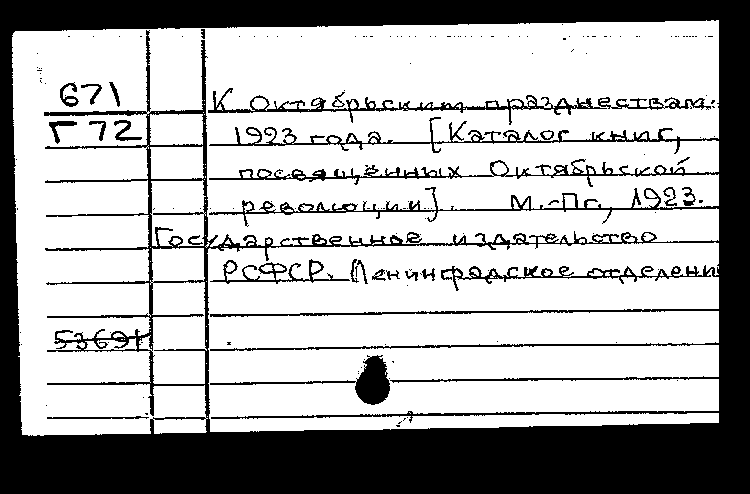 671
Г 72
К Октябрьским празднествам
1923 года. [Каталог книг,
посвящённых Октябрьской
революции]. М.-Пг., 1923.
Государственное издательство
РСФСР. Ленинградское отделени